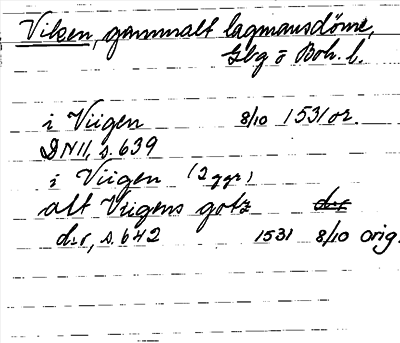 Viken, gammalt lagmansdöme,
Gbg o Boh. l.
i Viigen 8/10 1531 or.
DN11, s. 639
i Viigen (2 ggr)
alt Viigens gotz d:r
d:r, s. 642 1531 8/10 orig.